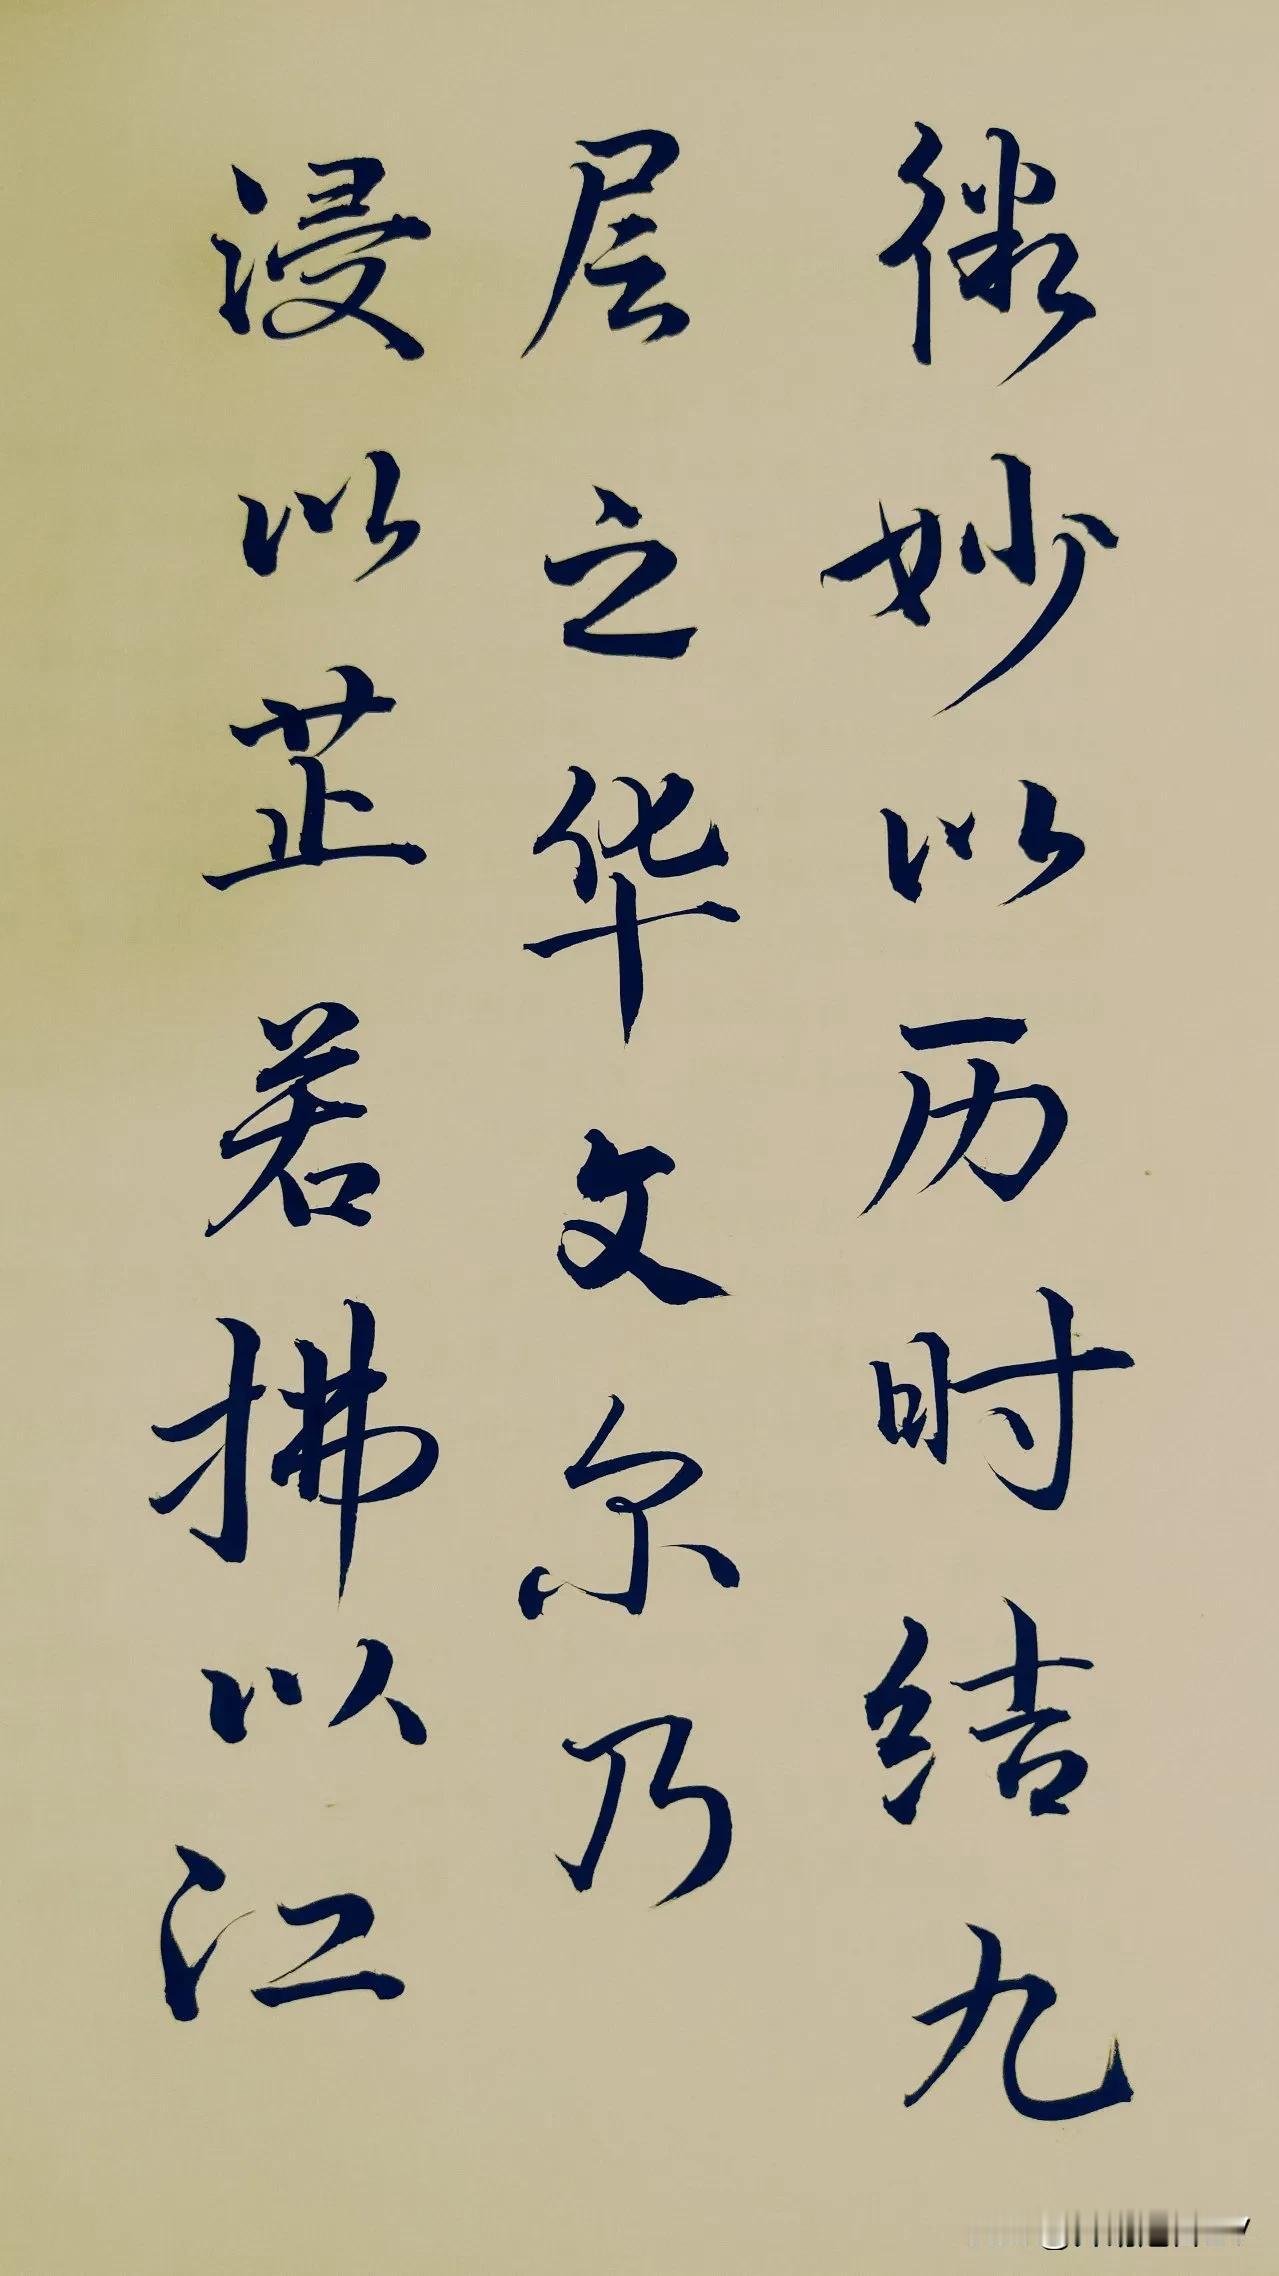 微妙以历时结九
层之华文尔乃
浸以芷若拂以江